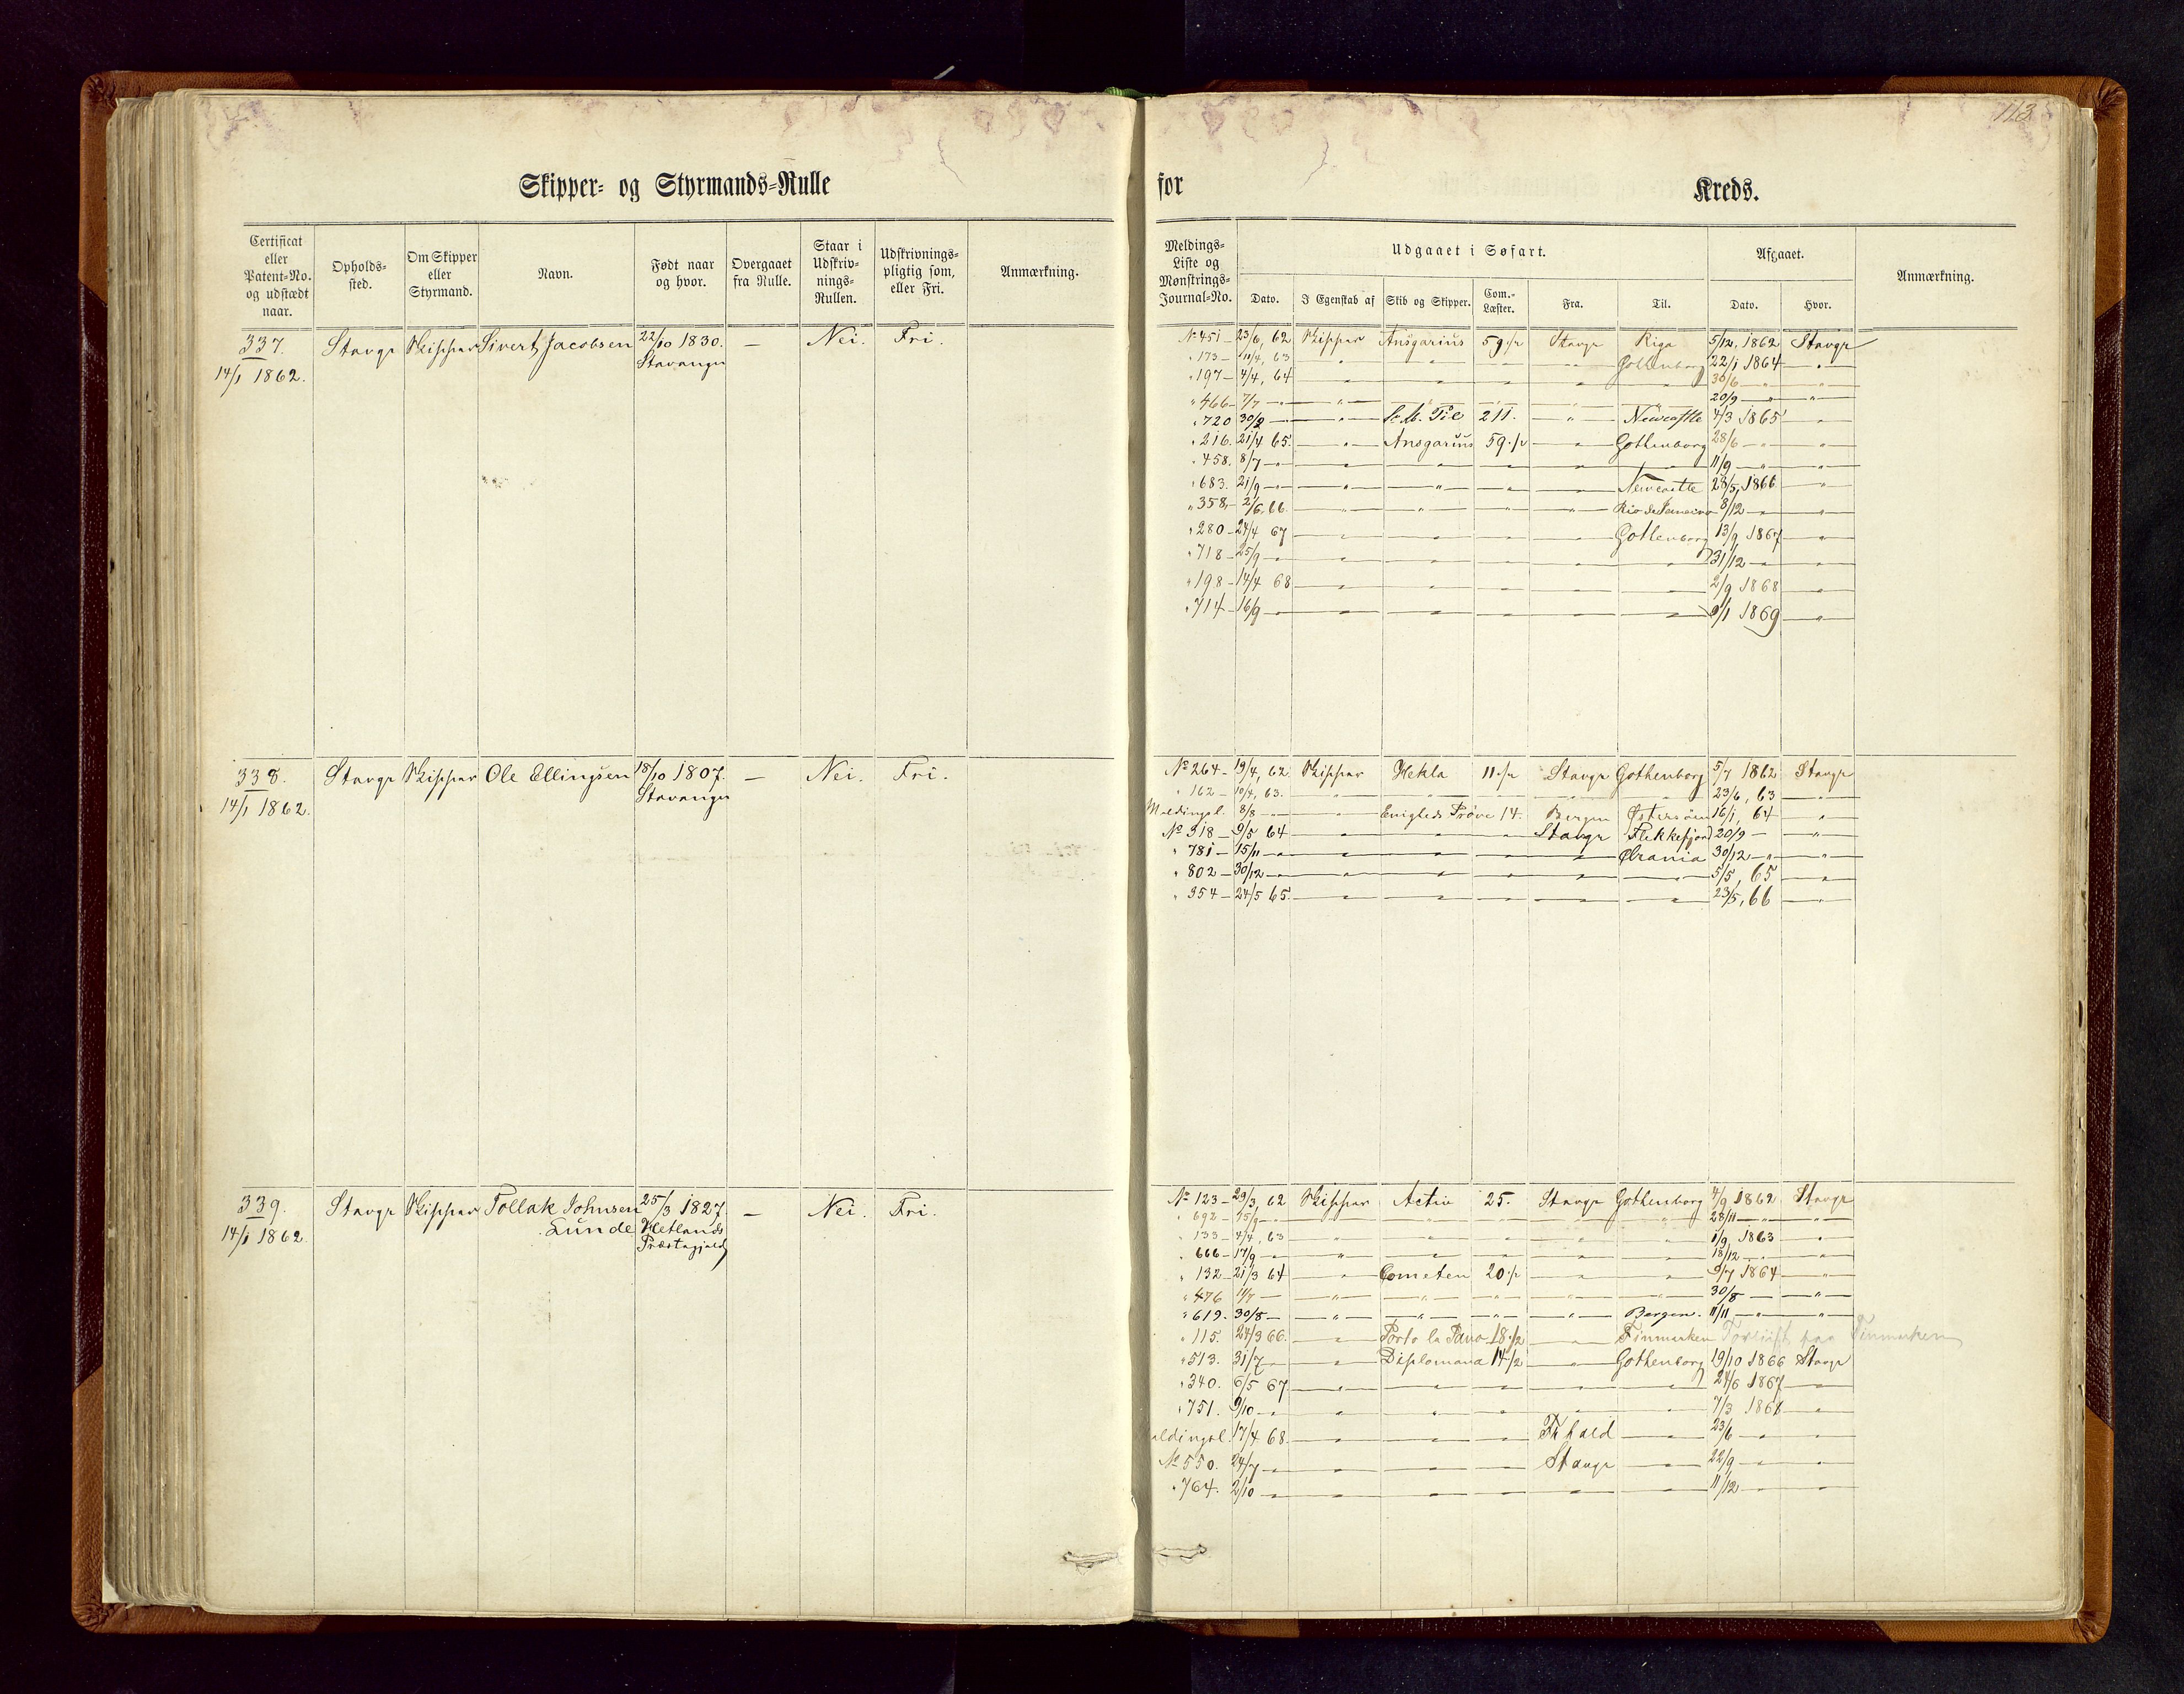 113
Skipper- og Styrmands-Rulle for Kreds.
Certificat eller Patent-No. og udstædt naar. Opholds-sted. Om Skipper eller Styrmand. Navn. Født naar og hvor. Overgaaet fra Rulle. Staar i Udskriv-nings-Rullen. Udskrivnings-pligtig som, eller Fri. Anmærkning.
Meldings-Liste og Mønstrings-Journal-No. Udgaaet i Søfart. Afgaaet. Anmærkning.
Dato. I Egenskab af Skib og Skipper. Com.-Læster. Fra. Til. Dato. Hvor.
337. Stavgr Skipper Sivert Jacobsen 22/10 1830. — Nei. Fri.
14/1 1862. Stavanger
No 451 — 23/6, 62 Skipper Ansgarius 59 ½ Stavgr Riga 5/12, 1862 Stavgr
" 173 — 11/4, 63 " " " " Gothenborg 22/1 1864 "
" 197 — 4/4, 64 " " " " " 30/6 " "
" 466 — 7/7 " " " " " " 20/9 " "
" 720 30/9 " 211. " Newcastle 4/3 1865 "
" 216. 21/4 65. " Ansgarius 59 ½ " Gothenborg 28/6 " "
" 458. 8/7 " " " " " " 11/9 " "
" 683. 21/9 " " " " " Newcastle 28/5, 1866 "
" 358, 2/6, 66. " " " " Rio de Janeiro 8/12 " "
" 280 — 24/4 67 " " " " Gothenborg 13/9 1867 "
" 718 — 25/9 " " " " " " 31/12 " "
" 198 — 14/4 68 " " " " " 2/9 1868 "
" 714 — 16/9 " " " " " " 9/1 1869 "
338. Stavgr Skipper Ole Ellingsen 18/10 1807. — Nei. Fri.
14/1 1862. Stavanger
No 264 — 19/4, 62 Skipper Hekla 11 ½ Stavgr Gothenborg 5/7 1862 Stavgr
" 162 — 10/4, 63. " " " " " 23/6, 63 "
Meldingsl. 8/8 " " Enigheds Prøve 14. Bergen Østersøen 16/1, 64 "
No 318 — 9/5 64 " " " Stavgr Flekkefjord 20/9 — "
" 781 — 15/11 " " " " " Chrania 30/12 " "
" 802 — 30/12 " " " " " " 5/5, 65 "
" 354 — 24/5 65. " " " " " 23/5, 66 "
339. Stavgr Skipper Tollak Johnsen 25/3 1827. — Nei. Fri.
14/1 1862. Lunde Hetlands
Præstegjeld
No 123 — 29/3, 62 Skipper Activ 25. Stavgr Gothenborg 4/9 1862 Stavgr
" 692 — 15/9 " " " " " " 28/11 " "
" 133 — 4/4, 63 " " " " " 1/9 1863 "
" 666 — 17/9 " " " " " " 18/12 " "
" 132 — 21/3 64 " Cometen 20 ½ " " 9/7 1864 "
" 476 — " " " " " 30/8 — "
" 619. 30/8 — " " " " Bergen. 11/11 " "
" 115. 24/3 66. " 18 ½ " Finmarken Forliist paa Finmarken
" 513. 31/7 " " 14 ½ " Gothenborg 19/10 1866 Stavgr
" 340. 6/5 67 " " " " " 24/6 1867 "
" 751. 9/10 " " " " " " 7/3 1868 "
eldingsl. 17/4 68. " " " Fr hald " 23/6 " "
No 550. 24/7 " " " " Stavgr " 22/9 " "
" 764. 2/10 " " " " " " 11/12 " "